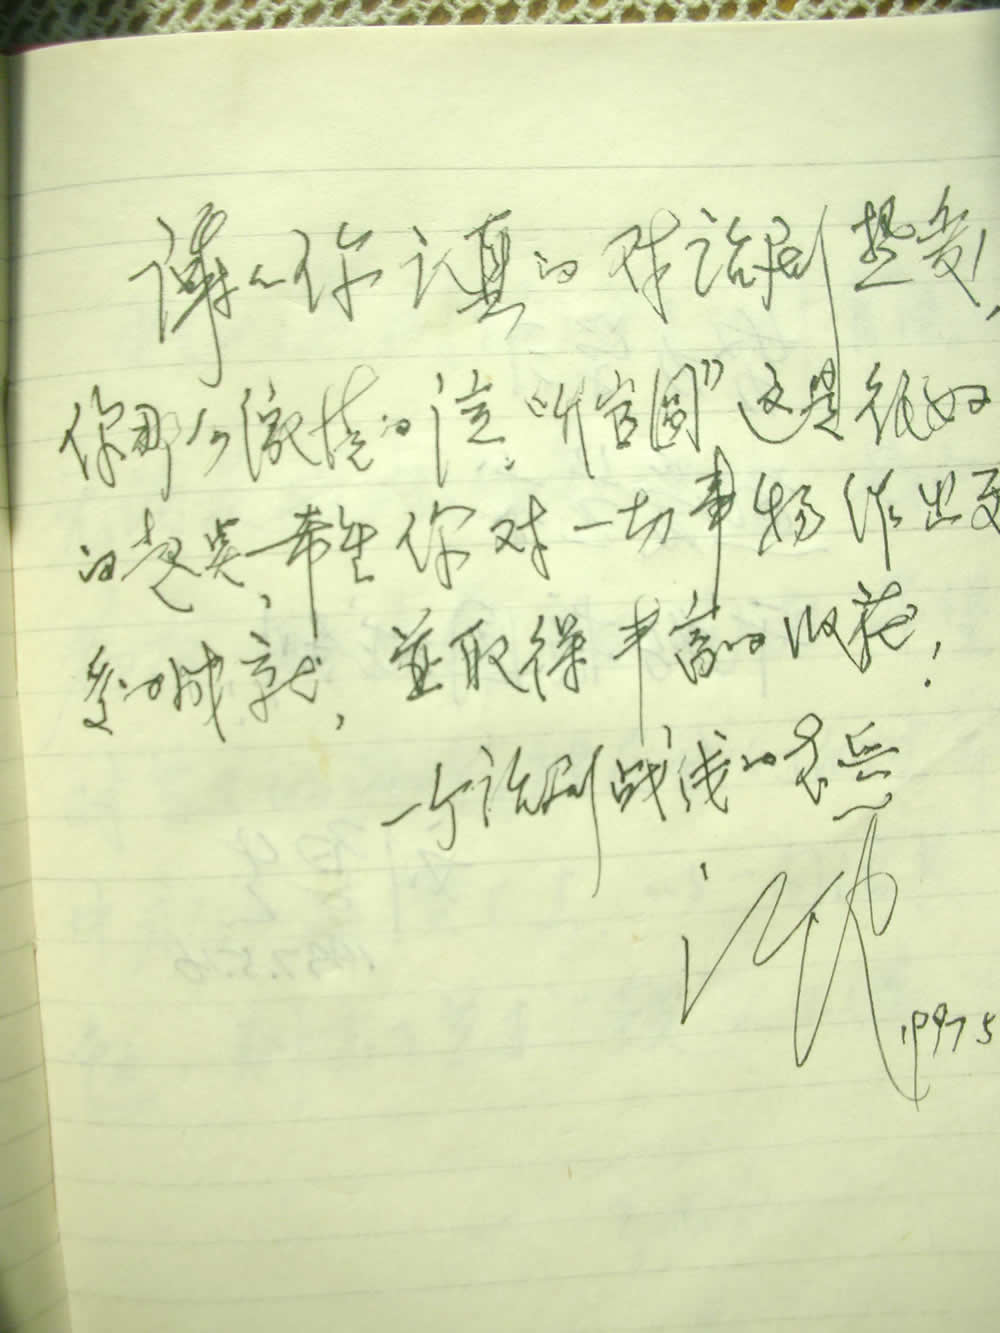 谢谢你认真的对话剧热爱,
你那么激情的读“升官图”这是很好
的起点,希望你对一切事物作出更
爱的成就,并取得丰富的收获!
一个话剧战线的老兵
1997 5